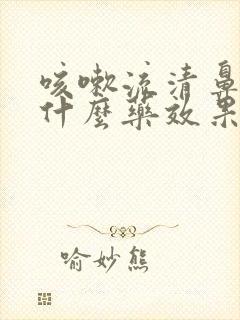 咳嗽流清鼻
什麼藥效果
喻妙熊